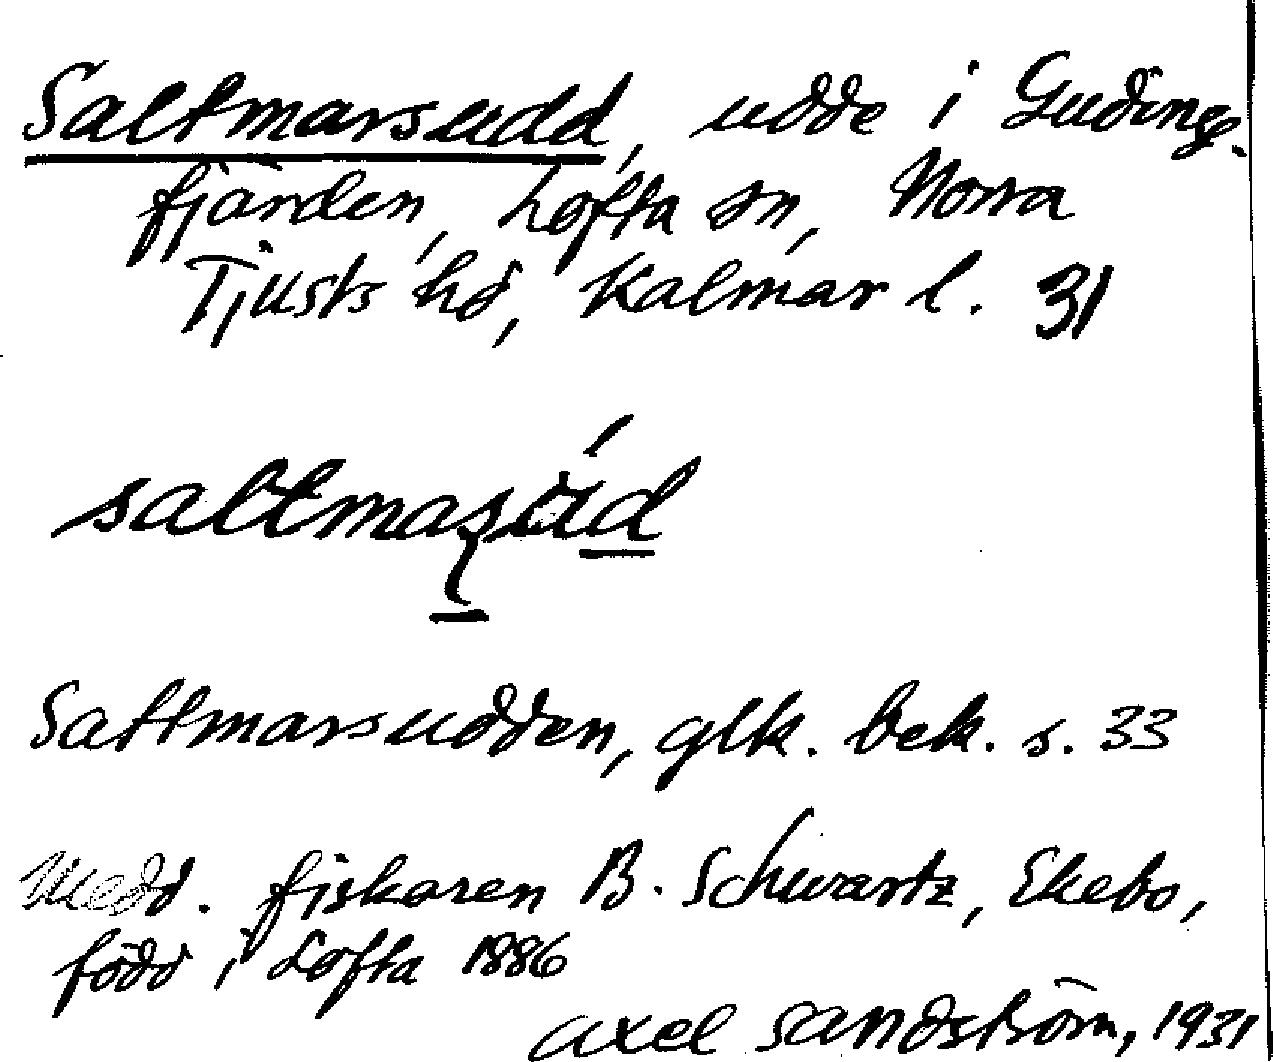 Saltmarsudd, udde i Gudinge-
fjärden, Lofta sn, Norra
Tjusts hd, Kalmar l. 31
Saltmarsudden, glk. bek. s. 33
Medd. fiskaren B. Schwartz, Ekebo,
född i Lofta 1886
Axel Sandström, 1931